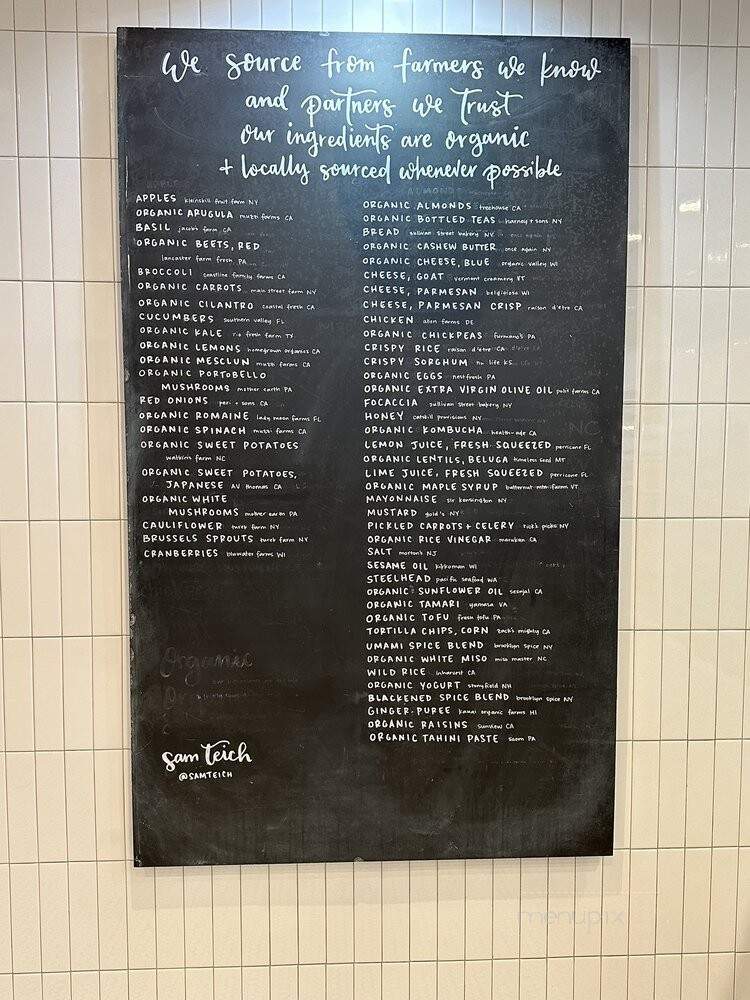 We source from farmers we know
and partners we trust
our ingredients are organic
+ locally sourced whenever possible
APPLES kleinskill fruit farm NY
ORGANIC ARUGULA muzzi farms CA
BASIL jacob's farm CA
ORGANIC BEETS, RED
lancaster farm fresh PA
BROCCOLI coastline family farms CA
ORGANIC CARROTS main street farm NY
ORGANIC CILANTRO coastal fresh CA
CUCUMBERS southern valley FL
ORGANIC KALE rio fresh farm TX
ORGANIC LEMONS homegrown organics CA
ORGANIC MESCLUN muzzi farms CA
ORGANIC PORTOBELLO
MUSHROOMS mother earth PA
RED ONIONS peri + sons CA
ORGANIC ROMAINE lady moon farms FL
ORGANIC SPINACH muzzi farms CA
ORGANIC SWEET POTATOES
watkins farm NC
ORGANIC SWEET POTATOES,
JAPANESE AV thomas CA
ORGANIC WHITE
MUSHROOMS mother earth PA
CAULIFLOWER turek farm NY
BRUSSELS SPROUTS turek farm NY
CRANBERRIES bluwater farms WI
Organic
sam teich
@SAMTEICH
ORGANIC ALMONDS treehouse CA
ORGANIC BOTTLED TEAS harney + sons NY
BREAD sullivan street bakery NY
ORGANIC CASHEW BUTTER once again NY
ORGANIC CHEESE, BLUE organic valley WI
CHEESE, GOAT vermont creamery VT
CHEESE, PARMESAN belgioioso WI
CHEESE, PARMESAN CRISP raison d'etre CA
CHICKEN allen farms DE
ORGANIC CHICKPEAS furmano's PA
CRISPY RICE raison d'etre CA
CRISPY SORGHUM nu life KS
ORGANIC EGGS nestfresh PA
ORGANIC EXTRA VIRGIN OLIVE OIL farms CA
FOCACCIA sullivan street bakery NY
HONEY catskill provisions NY
ORGANIC KOMBUCHA health-ade CA
LEMON JUICE, FRESH SQUEEZED perricone FL
ORGANIC LENTILS, BELUGA timeless seed MT
LIME JUICE, FRESH SQUEEZED perricone FL
ORGANIC MAPLE SYRUP butternut mtn farm VT
MAYONNAISE sir kensington NY
MUSTARD gold's NY
PICKLED CARROTS + CELERY rick's picks NY
ORGANIC RICE VINEGAR marukan CA
SALT morton's NJ
SESAME OIL kikkoman WI
STEELHEAD pacific seafood WA
ORGANIC SUNFLOWER OIL CA
ORGANIC TAMARI yamasa VA
ORGANIC TOFU fresh tofu PA
TORTILLA CHIPS, CORN zack's mighty CA
UMAMI SPICE BLEND brooklyn spice NY
ORGANIC WHITE MISO miso master NC
WILD RICE inharvest CA
ORGANIC YOGURT stonyfield NH
BLACKENED SPICE BLEND brooklyn spice NY
GINGER PUREE kauai organic farms HI
ORGANIC RAISINS sunview CA
ORGANIC TAHINI PASTE soom PA
menupix